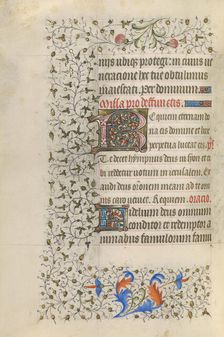 mus ubiqz protegi: in cuius ue
neracione hec tue obtulimus
maiestati. per dominum
Missa pro deffunctis.
Requiem eternam do
na eis domine et lux
perpetua luceat eis. ps
Te decet hympnus deus in syon et ti
bi reddetur uotum in ierusalem. Ex
audi deus orationem meam ad te
omnis caro veniet. Requiem. oracio.
Fidelium deus omnium
conditor et redemptor a
nimabus famulorum famu